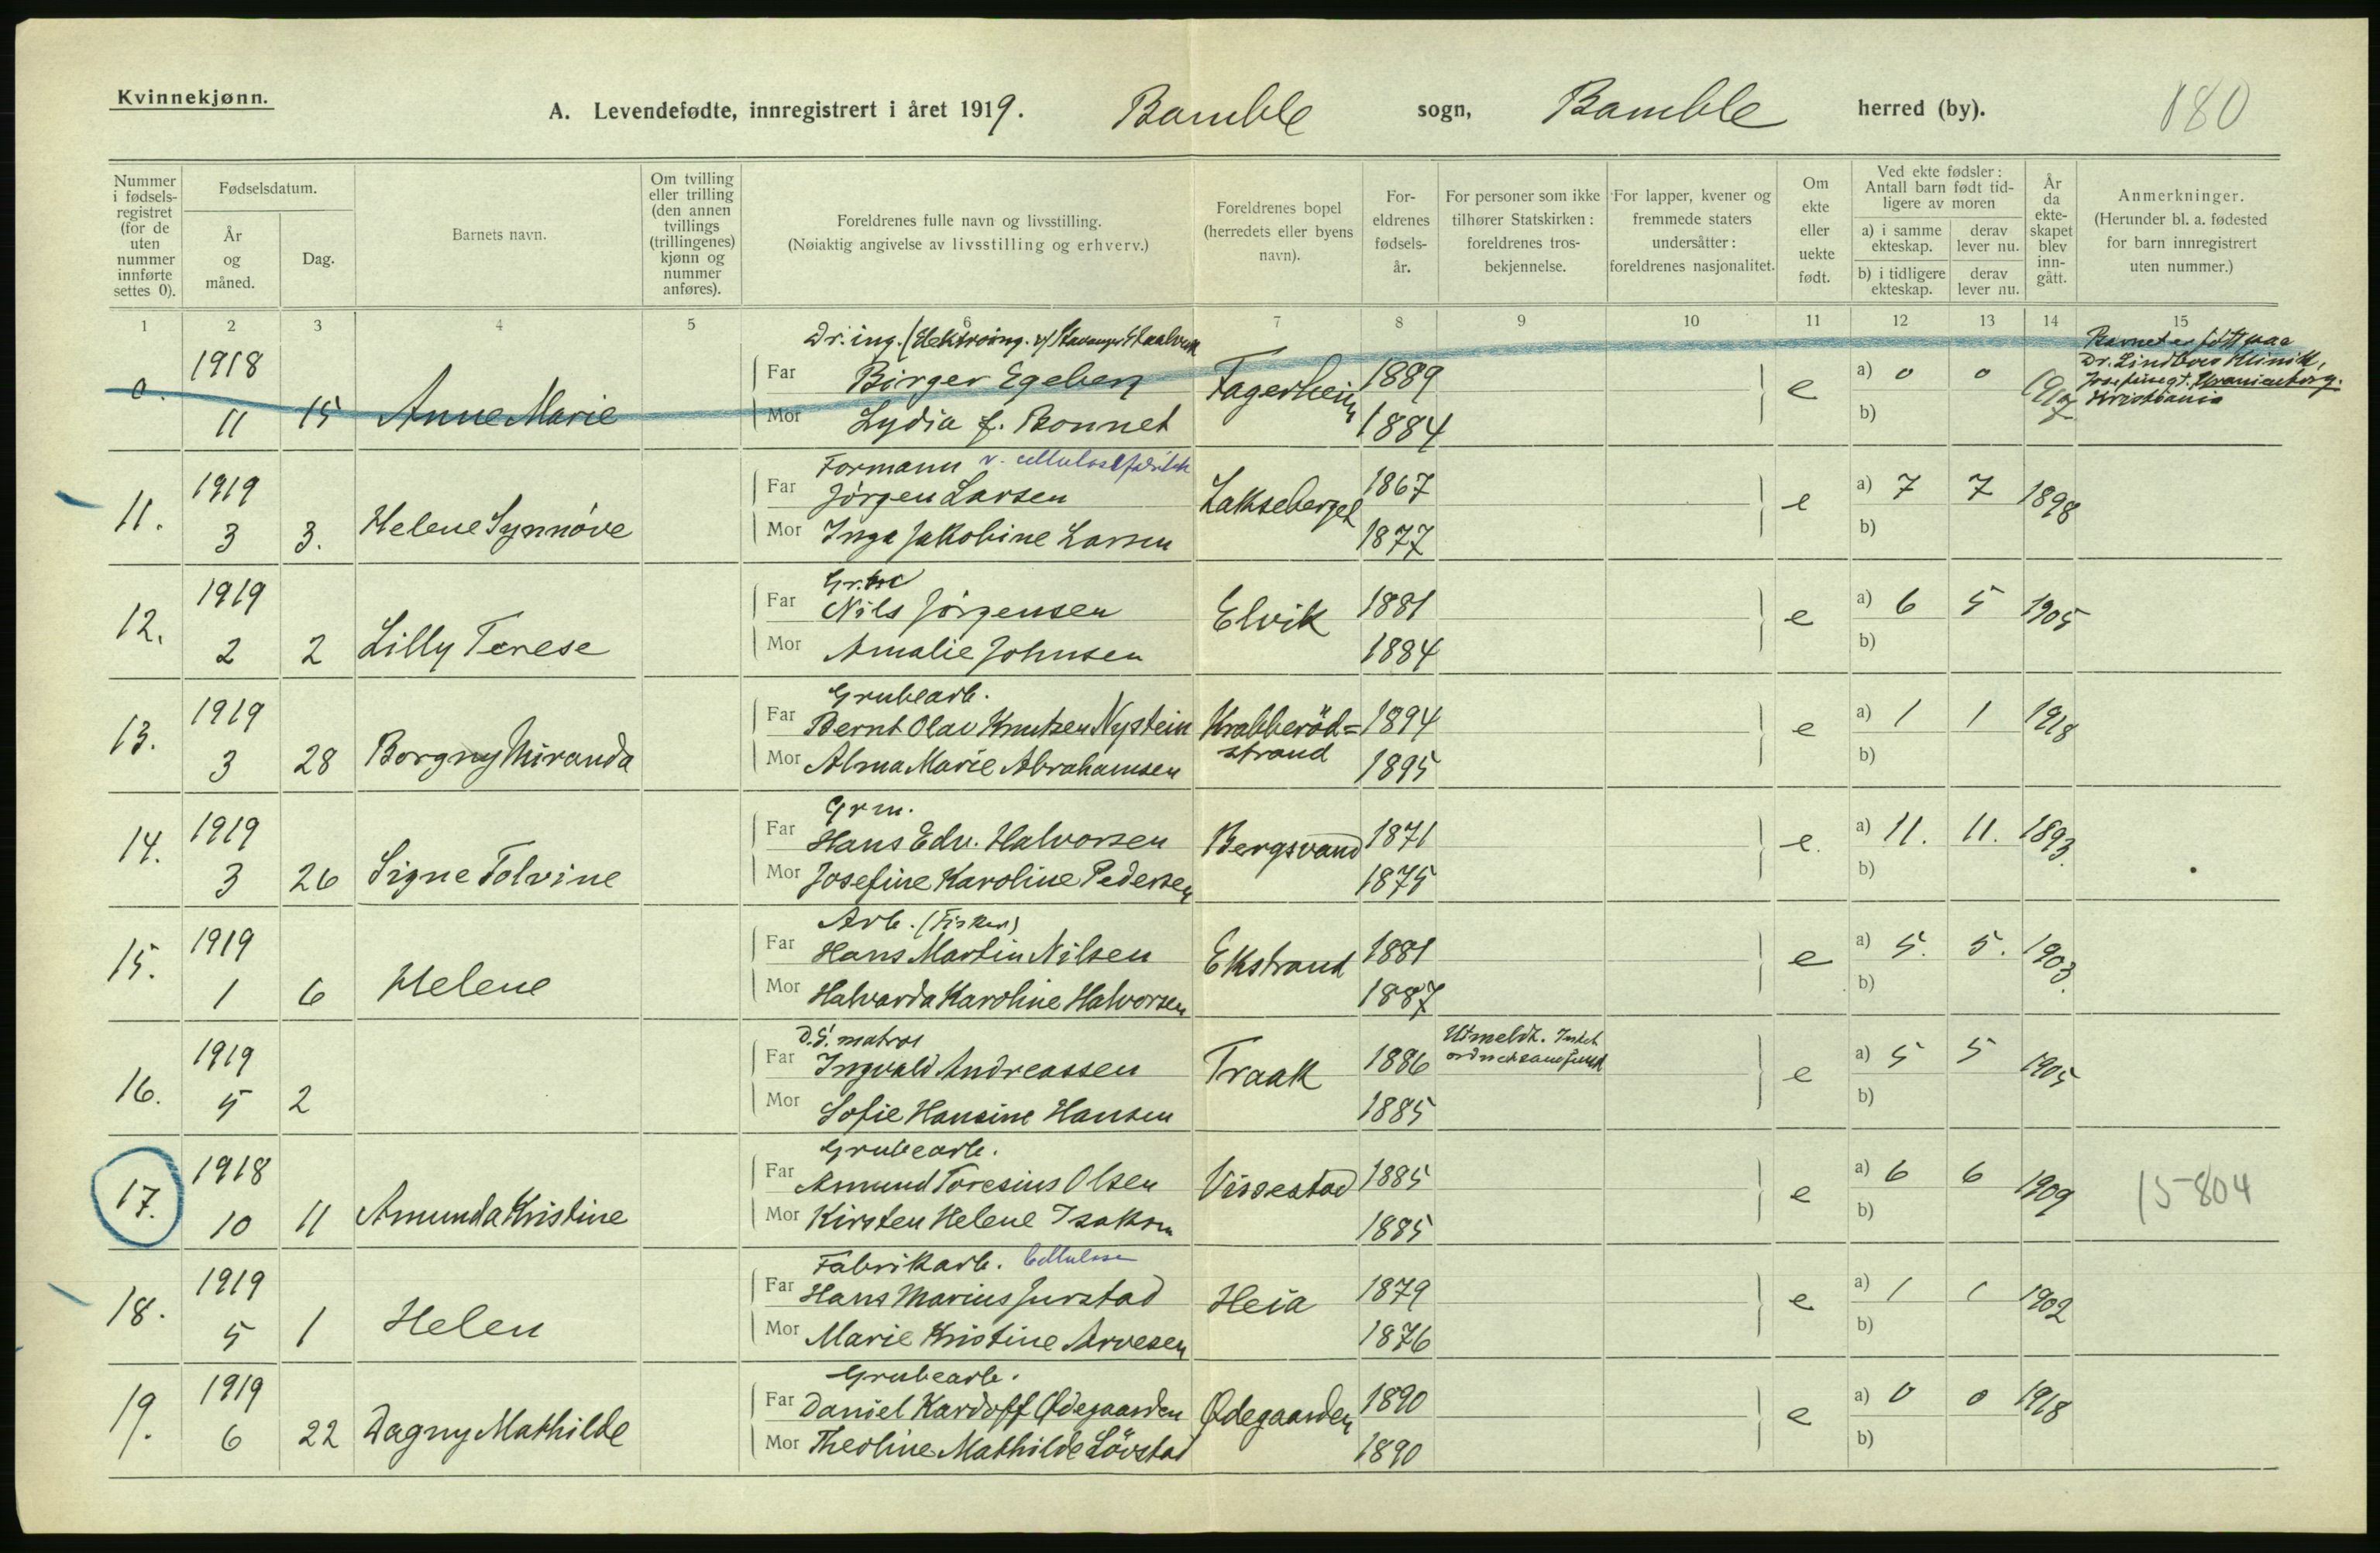 Kvinnekjønn.
A. Levendefødte, innregistrert i året 1919. Bamble sogn, Bamble herred (by). 180
Nummer i fødsels-registret (for de uten nummer innførte settes 0).
Fødselsdatum.
År og måned.
Dag.
Barnets navn.
Om tvilling eller trilling (den annen tvillings (trillingenes) kjønn og nummer anføres).
Foreldrenes fulle navn og livsstilling.
(Nøiaktig angivelse av livsstilling og erhverv.)
Foreldrenes bopel (herredets eller byens navn).
For-eldrenes fødsels-år.
For personer som ikke tilhører Statskirken: foreldrenes tros-bekjennelse.
For lapper, kvener og fremmede staters undersåtter: foreldrenes nasjonalitet.
Om ekte eller uekte født.
Ved ekte fødsler: Antall barn født tid-ligere av moren
a) i samme ekteskap. derav lever nu.
b) i tidligere ekteskap. derav lever nu.
År da ekte-skapet blev inn-gått.
Anmerkninger.
(Herunder bl. a. fødested for barn innregistrert uten nummer.)
1 2 3 4 5 6 7 8 9 10 11 12 13 14 15
Dr. ing. (Elektroing. v/ Stavanger Staalverk
0. 1918 11 15 Anne Marie
Far Birger Egeberg Fagerheim 1889 e a) 0 0 1917
Mor Lydia f. Bonnet 1884 b)
Barnet er født paa
Dr. Lindboes Klinik,
Josefinegt. Uranienborg.
Kristiania
Formann v. cellulosefabrik
11. 1919 3 3. Helene Synnöve
Far Jörgen Larsen Lakseberget 1867 e a) 7 7 1898
Mor Inga Jakobine Larsen 1877 b)
12. 1919 2 2 Lilly Terese
Far Nils Jörgensen Elvik 1881 e a) 6 5 1905
Mor Amalie Johnsen 1884 b)
Grubearb.
13. 1919 3 28 Borgny Miranda
Far Bernt Olav Knutsen Nystein Krabberöd=strand 1894 e a) 1 1 1918
Mor Alma Marie Abrahamsen 1895 b)
Grm.
14. 1919 3 26 Signe Tolvine
Far Hans Edv. Halvorsen Bergsvand 1871 e. a) 11. 11. 1893.
Mor Josefine Karoline Pedersen 1875 b)
Arb. (Fisker)
15. 1919 1 6 Helene
Far Hans Martin Nilsen Ekstrand 1881 e a) 5. 5. 1903.
Mor Halvarda Karoline Halvorsen 1887 b)
D.S. matros
16. 1919 5 2
Far Ingvald Andreassen Traak 1886 Utmeldt. Intet ordnet samfund e a) 5 5 1905
Mor Sofie Hansine Hansen 1885 b)
Grubearb.
17. 1918 10 11 Amunda Kristine
Far Amund Toresius Olsen Vissestad 1885 e a) 6 6 1909 15-804
Mor Kirsten Helene Isaksen 1885 b)
Fabrikarb. Cellulose
18. 1919 5 1 Helen
Far Hans Marius Jurstad Heia 1879 e a) 1 1 1902
Mor Marie Kristine Arvesen 1876 b)
Grubearb.
19. 1919 6 22 Dagny Mathilde
Far Daniel Kardoff Ødegaarden Ødegaarden 1890 e a) 0 0 1918
Mor Theoline Mathilde Lövstad 1890 b)